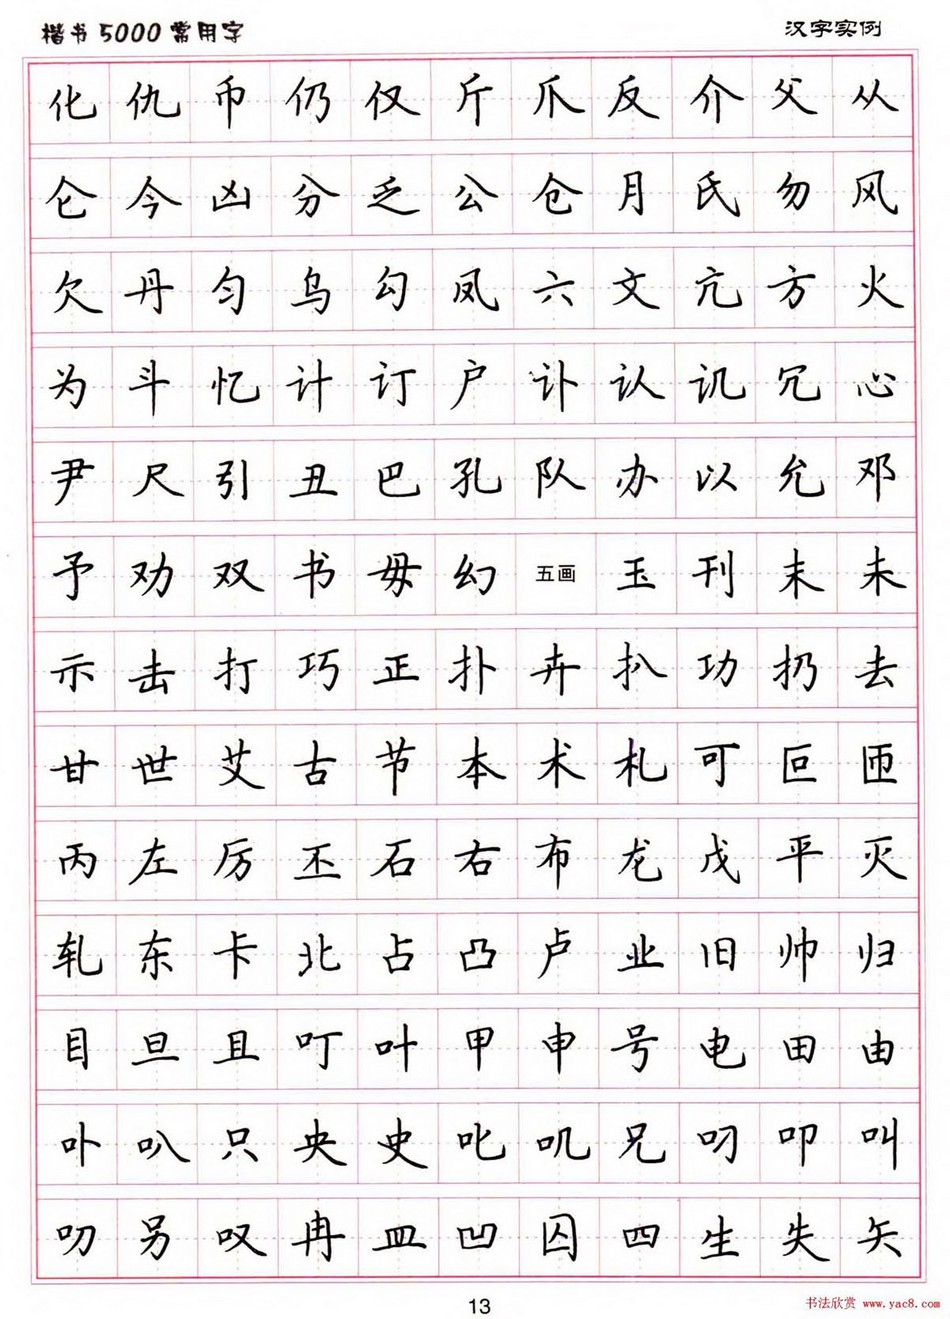 楷书5000常用字 汉字实例
化仇币仍仅斤爪反介父从
仑今凶分乏公仓月氏勿风
欠丹匀乌勾凤六文亢方火
为斗忆计订户讣认讥冗心
尹尺引丑巴孔队办以允邓
予劝双书毋幻五画玉刊末未
示击打巧正扑卉扒功扔去
甘世艾古节本术札可叵匝
丙左厉丕石右布龙戊平灭
轧东卡北占凸卢业旧帅归
目旦且叮叶甲申号电田由
卟叭只央史叱叽兄叼叩叫
叻另叹冉皿凹囚四生失矢
13
书法欣赏 www.yac8.com